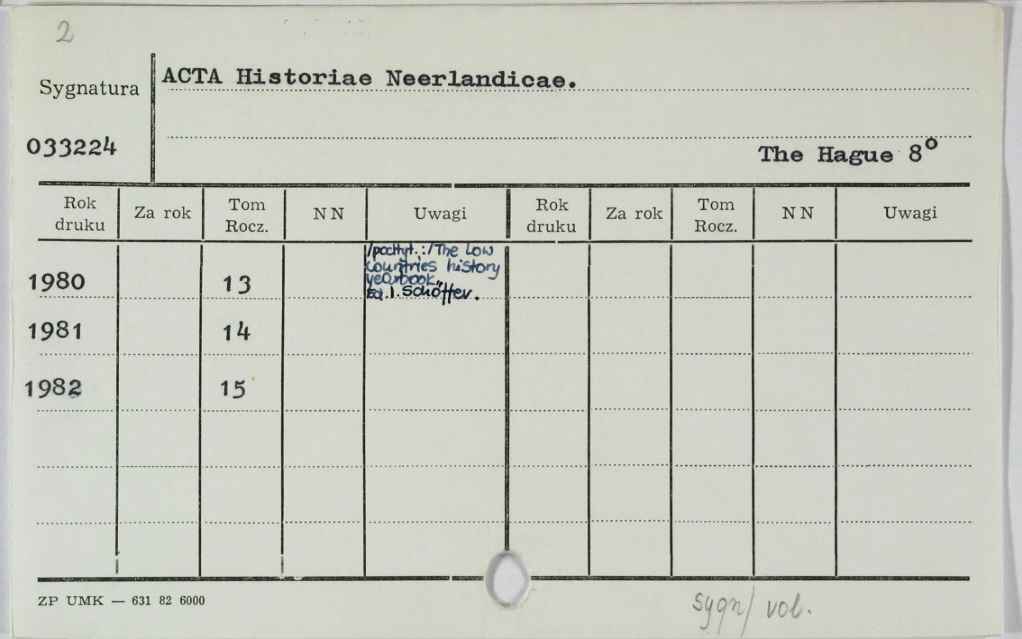 2
Sygnatura
ACTA Historiae Neerlandicae.
033224
The Hague 8⁰
Rok druku Za rok Tom Rocz. NN Uwagi Rok druku Za rok Tom Rocz. NN Uwagi
/podtyt.:/The Low
Countries history
yearbook„
1980 13 Ed. I. Schöffer.
1981 14
1982 15
ZP UMK — 631 82 6000
sygn/ vol.